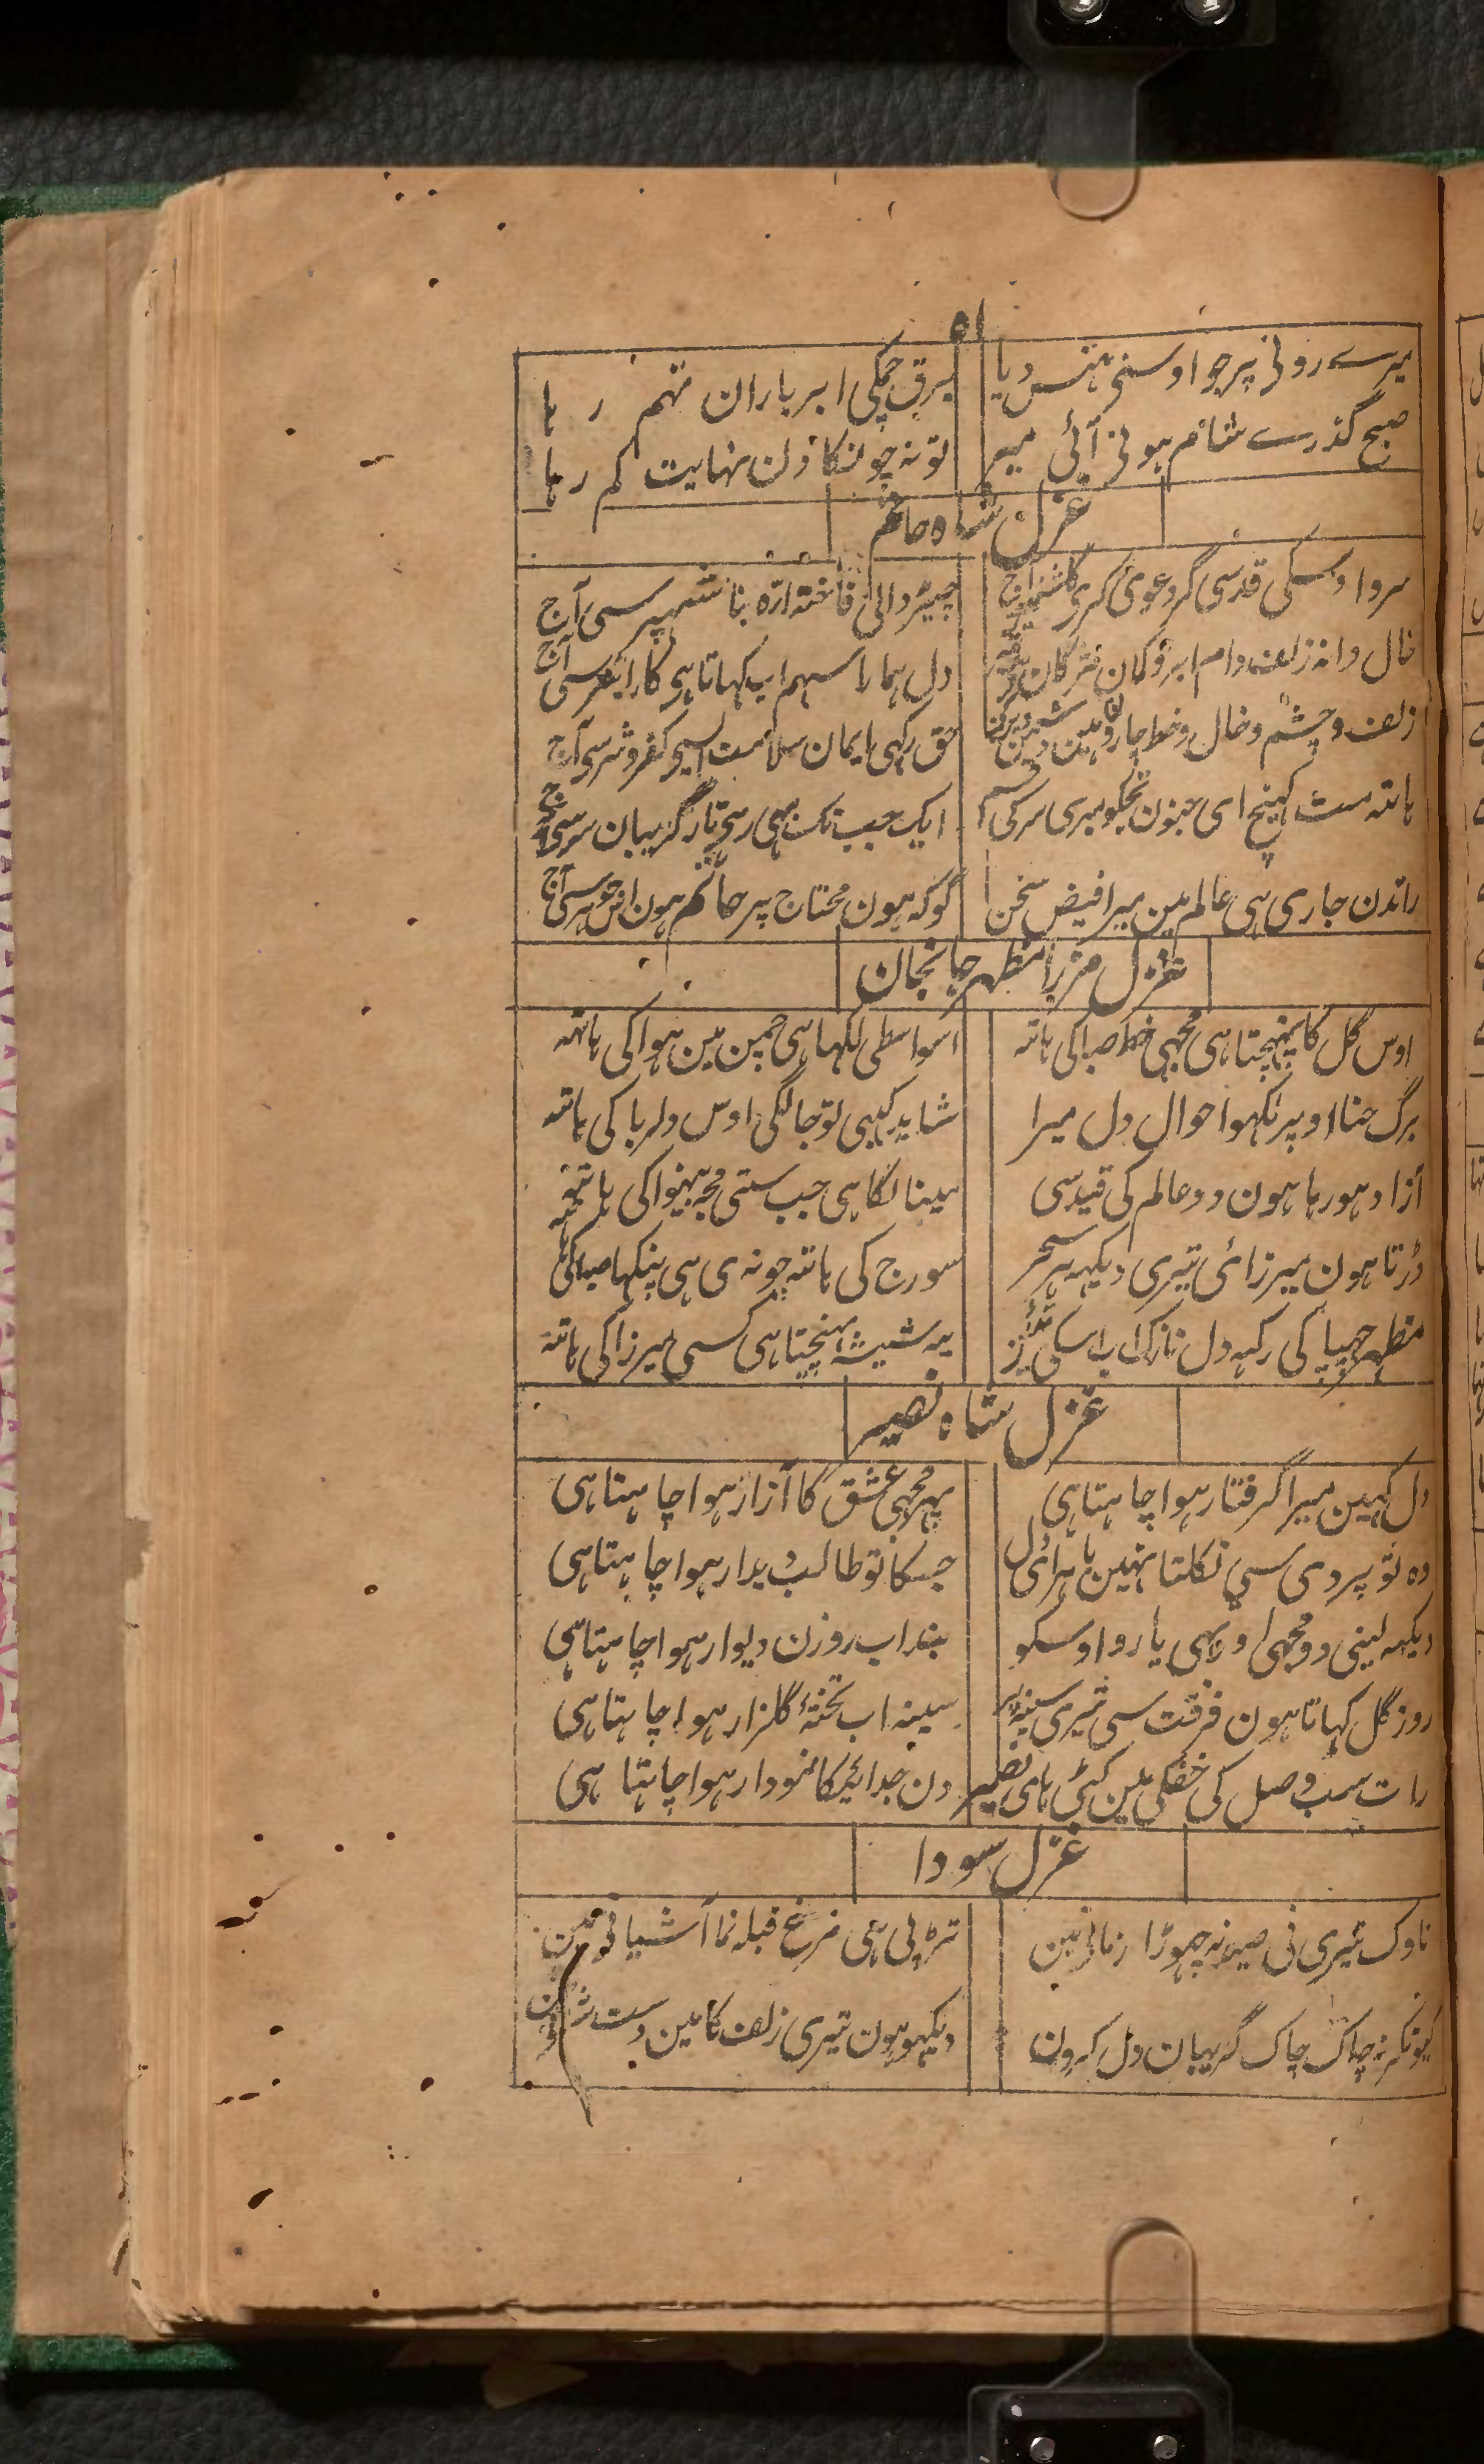 ۵۱
میرے رونی پر جو اوسنی ہنس دیا برق چمکی ابر باران تہم رہا
صبح گذرے شام ہونی آئی میر تو نہ چونکا دن نہایت کم رہا
غزل شاہ حاتم
سرو اوسکی قد سی گر دعوی کری گلشن آج چیڑ والی فاختہ ارہ بنا شہپر سی آج
خال دانہ زلف دام ابرو کمان مژگان دل ہمارا سہم اب کہاتا ہی کا را سی آج
زلف و چشم و خال و خط چارون ہین دین حق رکہی ایمان سلامت سی آج
ہاتہ مت کہینچ ای جنون تجکو میری سر کی قسم ایک جب تک بہی رہی تار گریبان سر سی
راتدن جاری ہی عالم مین میرا فیض سخن گو کہ ہون محتاج پر حاتم ہون سی آج
غزل مرزا مظہر جانجان
اوس گل کا پہنچتا ہی مجہی خط صبا کی ہاتہ اسواسطی لکہا ہی چمن مین ہوا کی ہاتہ
برگ حنا اوپر لکہو احوال دل میرا شاید کبہی تو جا لگی اوس دلربا کی ہاتہ
آزاد ہو رہا ہون دو عالم کی قید سی مینا لگا ہی جب ستی مجہ بینوا کی ہاتہ
ڈرتا ہون میرزائی تیری دیکہہ ہر سحر سورج کی ہاتہ چونہ ی ہی پنکہا صبا کی
مظہر چہپا کی رکہہ دل نازک اب اسکی یہ شیشہ پہنچتا ہی کسی میرزا کی ہاتہ
غزل شاہ نصیر
دل کہین میرا گرفتار ہوا چاہتا ہی پہر مجہی عشق کا آزار ہوا چاہتا ہی
وہ تو پردی سی نکلتا نہین باہر ای دل جسکا تو طالب دیدار ہوا چاہتا ہی
دیکہہ لینی دو مجہی اور بہی یارو اوسکو بند اب روزن دیوار ہوا چاہتا ہی
روز گل کہاتا ہون فرقت سی تیری سینہ پر سینہ اب تختۂ گلزار ہوا چاہتا ہی
رات سب وصل کی خفگی مین کٹی ہای نصیر دن جدائیکا نمودار ہوا چاہتا ہی
غزل سودا
ناوک تیری نی صید نہ چہوڑا زمانی مین تڑپی ہی مرغ قبلہ نما آشیانی مین
کیونکر نہ چاک چاک گریبان دل کرون دیکہو ہون تیری زلف کا مین دست